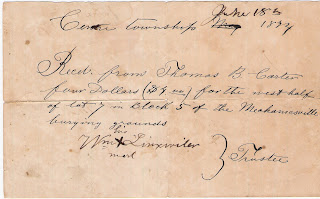 June 18th
Centre township May 1874
Recd. from Thomas B. Carter
four Dollars ($4.00) for the west half
of lot 7 in block 5 of the Mechanicsville
burying grounds
his
Wm X Linxwiler } Trustee
mark